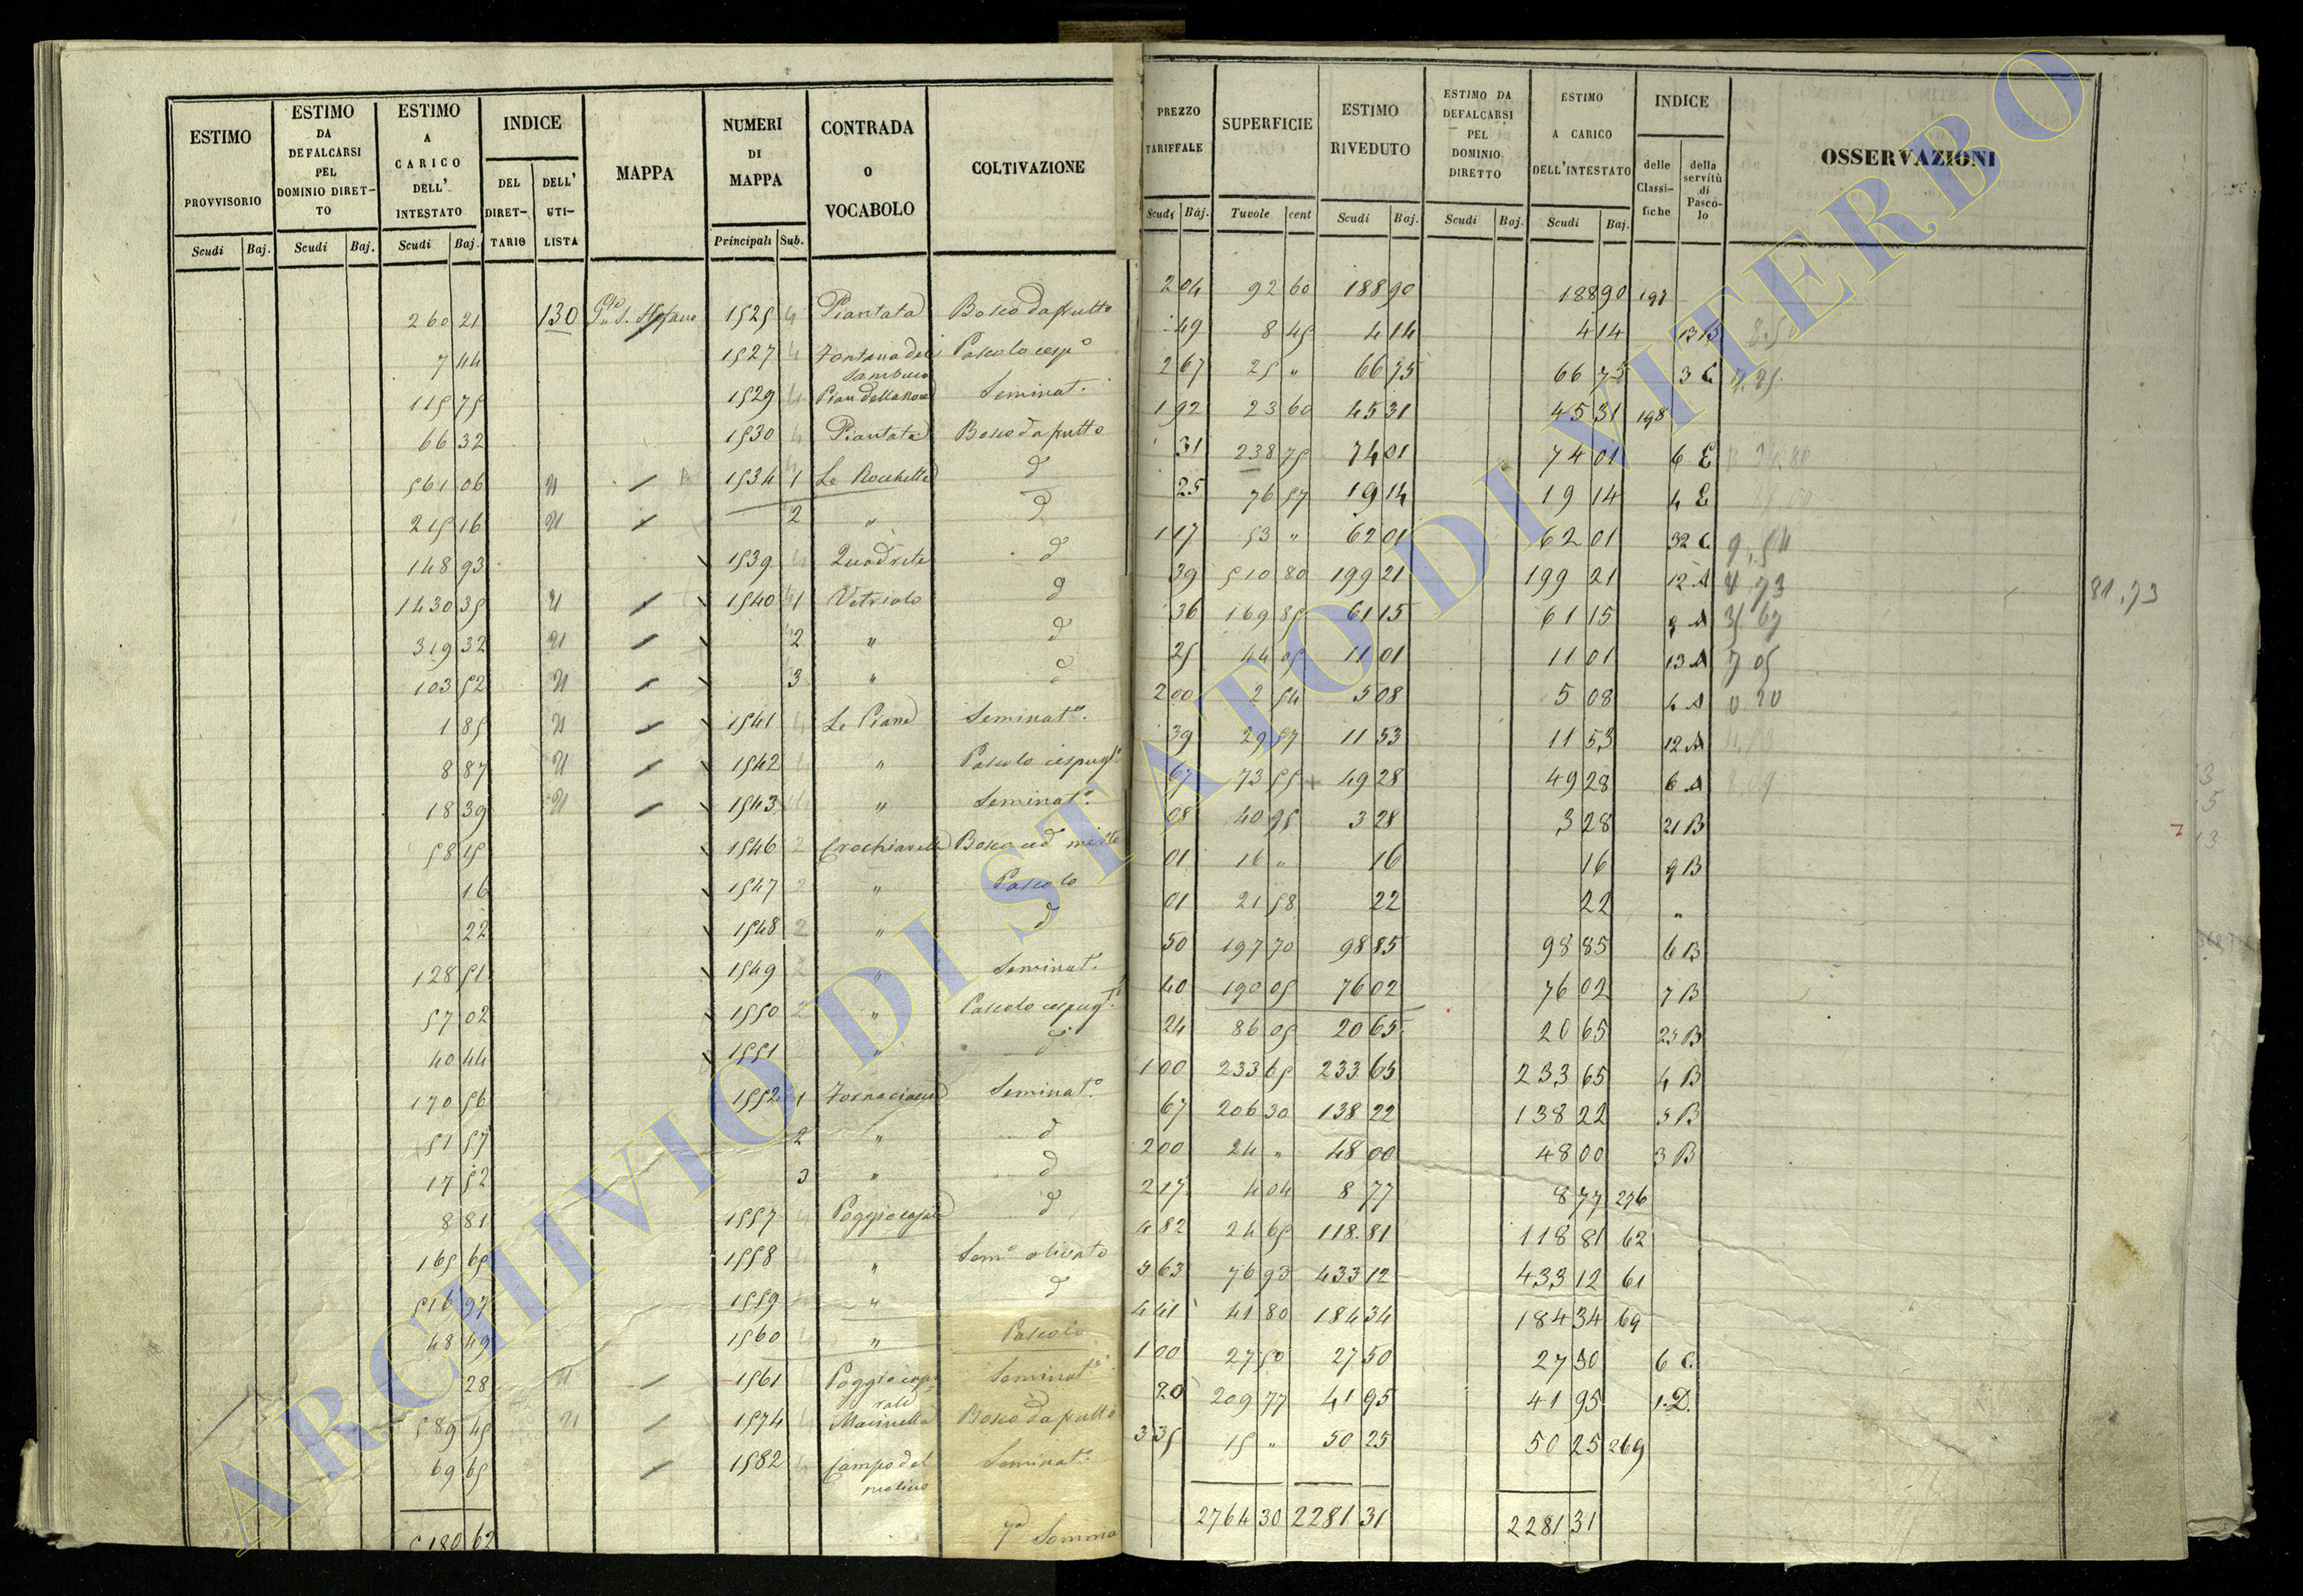 ESTIMO PROVVISORIO Scudi Baj.
ESTIMO DA DEFALCARSI PEL DOMINIO DIRETTO Scudi Baj.
ESTIMO A CARICO DELL' INTESTATO Scudi Baj.
INDICE DEL DIRETTARIO DELL' UTILISTA
MAPPA
NUMERI DI MAPPA Principali Sub.
CONTRADA O VOCABOLO
COLTIVAZIONE
260 21 130 1525 Piantata Bosco da frutto
7 44 1527 Fontana del Sambuco Pascolo cespo
115 75 1529 Seminato
66 32 1530 Piantata Bosco da frutto
561 06 1534 1 Le Rocchette d
215 16 2 " d
148 93 1539 d
1430 35 1540 1 Vetriolo d
319 32 2 " d
103 52 3 " d
1 85 1541 Le Piane Seminato
8 87 1542 " Pascolo cespug
18 39 1543 " Seminato
58 15 1546 Bosco ced misto
16 1547 " Pascolo
22 1548 2 " d
128 51 1549 " Seminat
57 02 1550 2 " Pascolo cespug
40 44 1551 " d
170 56 1552 1 Seminato
51 57 2 " d
17 52 3 " d
8 81 1557 d
165 65 1558 " Semo olivato
516 97 1559 " d
48 49 1560 " Pascolo
28 1561 Seminato
589 45 1574 Macinella Bosco da frutto
69 65 1582 Campo del molino Seminato
5180 62 7a Somma
PREZZO TARIFFALE Scudi Baj.
SUPERFICIE Tavole cent
ESTIMO RIVEDUTO Scudi Baj.
ESTIMO DA DEFALCARSI PEL DOMINIO DIRETTO Scudi Baj.
ESTIMO A CARICO DELL'INTESTATO Scudi Baj.
INDICE delle Classifiche della servitù di Pascolo
OSSERVAZIONI
2 04 92 60 188 90 188 90 197
49 8 45 4 14 4 14 13 B
2 67 25 " 66 75 66 75 3 C
1 92 23 60 45 31 45 31 198
31 238 75 74 01 74 01 6 E
25 76 57 19 14 19 14 4 E
1 17 53 " 62 01 62 01 32 C 9.54
39 510 80 199 21 199 21 12 A 81,73
36 169 85 61 15 61 15 9 A 35 67
25 44 05 11 01 11 01 13 A 7 05
2 00 2 54 5 08 5 08 4 A 0 20
39 29 57 11 53 11 53 12 A
67 73 55 49 28 49 28 6 A
08 40 95 3 28 3 28 21 B
01 16 " 16 16 9 B
01 21 58 22 22 "
50 197 70 98 85 98 85 6 B
40 190 05 76 02 76 02 7 B
24 86 05 20 65 20 65 25 B
1 00 233 65 233 65 233 65 4 B
67 206 30 138 22 138 22 5 B
2 00 24 " 48 00 48 00 3 B
2 17 4 04 8 77 8 77 276
4 82 24 65 118 81 118 81 62
5 63 76 93 433 12 433 12 61
4 41 41 80 184 34 184 34 69
1 00 27 50 27 50 27 50 6 C
20 209 77 41 95 41 95 1.D.
3 35 15 " 50 25 50 25 269
2764 30 2281 31 2281 31
ARCHIVIO DI STATO DI VITERBO